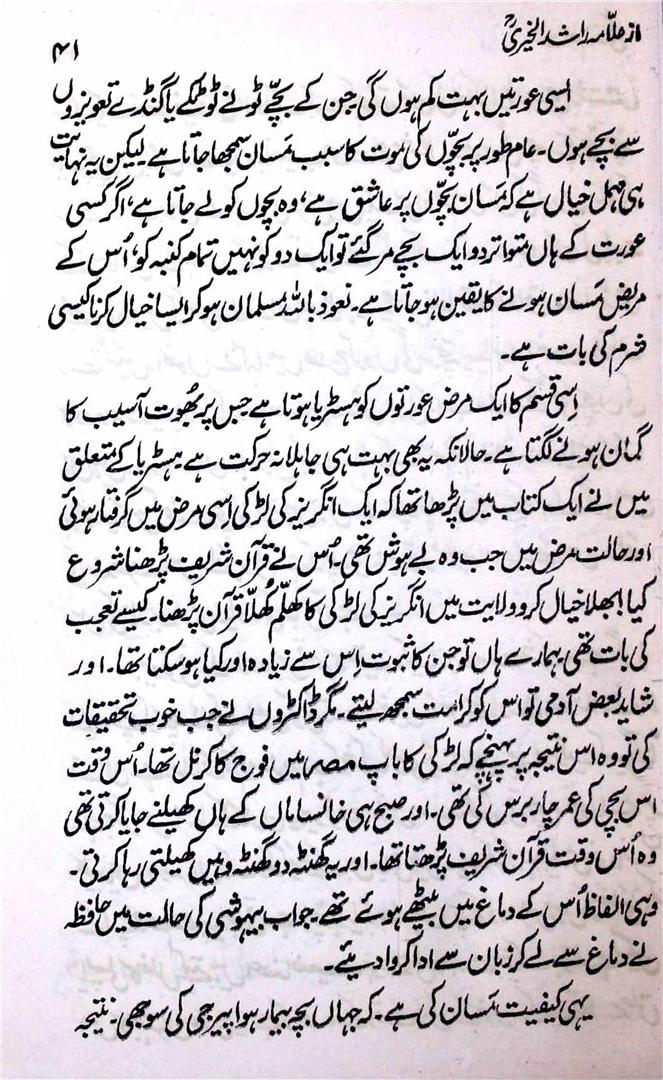 از علامہ راشد الخیریؒ
۴۱
ایسی عورتیں بہت کم ہوں گی جن کے بچّے ٹونے ٹوٹکے یا گنڈے تعویزوں
سے بچے ہوں۔ عام طور پر بچّوں کی موت کا سبب مَسان سمجھا جاتا ہے۔ لیکن یہ نہایت
ہی مہمل خیال ہے کہ مَسان بچّوں پر عاشق ہے، وہ بچوں کو لے جاتا ہے، اگر کسی
عورت کے ہاں متواتر دو ایک بچے مر گئے تو ایک دو کو نہیں تمام کنبہ کو، اُس کے
مریض مَسان ہونے کا یقین ہو جاتا ہے۔ نعوذ باللہ مسلمان ہو کر ایسا خیال کرنا کیسی
شرم کی بات ہے۔
اِسی قسم کا ایک مرض عورتوں کو ہسٹریا ہوتا ہے جس پر بھُوت آسیب کا
گمان ہونے لگتا ہے۔ حالانکہ یہ بھی بہت ہی جاہلانہ حرکت ہے۔ ہسٹریا کے متعلق
میں نے ایک کتاب میں پڑھا تھا کہ ایک انگریز کی لڑکی اِسی مرض میں گرفتار ہوئی
اور حالت مرض میں جب وہ بے ہوش تھی۔ اُس نے قرآن شریف پڑھنا شروع
کیا! بھلا خیال کرو ولایت میں انگریز کی لڑکی کا کھلّم کُھلّا قرآن پڑھنا۔ کیسے تعجب
کی بات تھی ہمارے ہاں تو جن کا ثبوت اِس سے زیادہ اور کیا ہو سکتا تھا۔ اور
شاید بعض آدمی تو اس کو کرامت سمجھ لیتے۔ مگر ڈاکٹروں نے جب خوب تحقیقات
کی تو وہ اس نتیجہ پر پہنچے کہ لڑکی کا باپ مصر میں فوج کا کرنل تھا۔ اُس وقت
اس بچی کی عمر چار برس کی تھی۔ اور صبح ہی خانساماں کے ہاں کھیلنے جایا کرتی تھی
وہ اُس وقت قرآن شریف پڑھتا تھا۔ اور یہ گھنٹہ دو گھنٹہ وہیں کھیلتی رہا کرتی۔
وہی الفاظ اُس کے دماغ میں بیٹھے ہوئے تھے۔ جو اب بیہوشی کی حالت میں حافظہ
نے دماغ سے لے کر زبان سے ادا کروا دیئے۔
یہی کیفیت مَسان کی ہے۔ کہ جہاں بچہ بیمار ہوا پیر جی کی سوجھی۔ نتیجہ